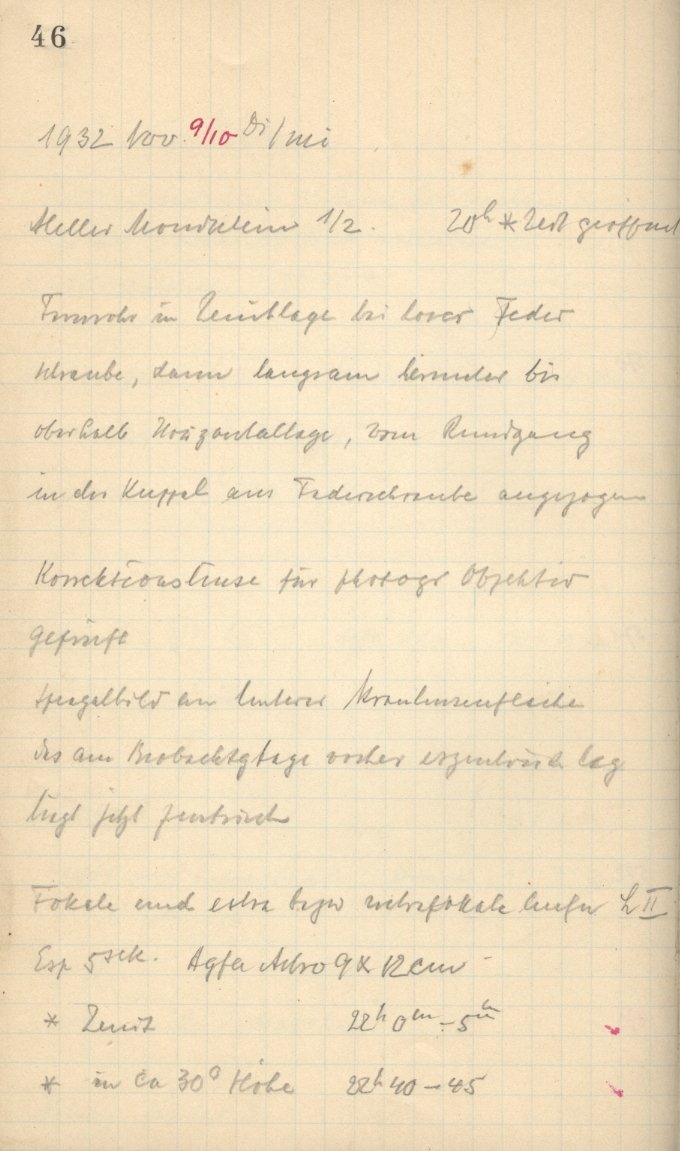 46
1932 Nov. 9/10 Di/Mi
Heller Mondschein 1/2. 20h * Zeit geöffnet
Fernrohr in Zenitlage bei loser Feder
schraube, dann langsam herunter bis
oberhalb Horizontallage, vom Rundgang
in der Kuppel aus Federschraube angezogen
Korrektionslinse für photogr Objektiv
geprüft
Spiegelbild an hinterer Kronlinsenfläche
das am Beobachtgtage vorher exzentrisch lag
liegt jetzt zentrisch
Fokale und extra bezw intrafokale L II
Exp 5 sek. Agfa Astro 9 x 12 cm
* Zenit 22h 0m - 5m
* in ca 30° Höhe 22h 40 - 45